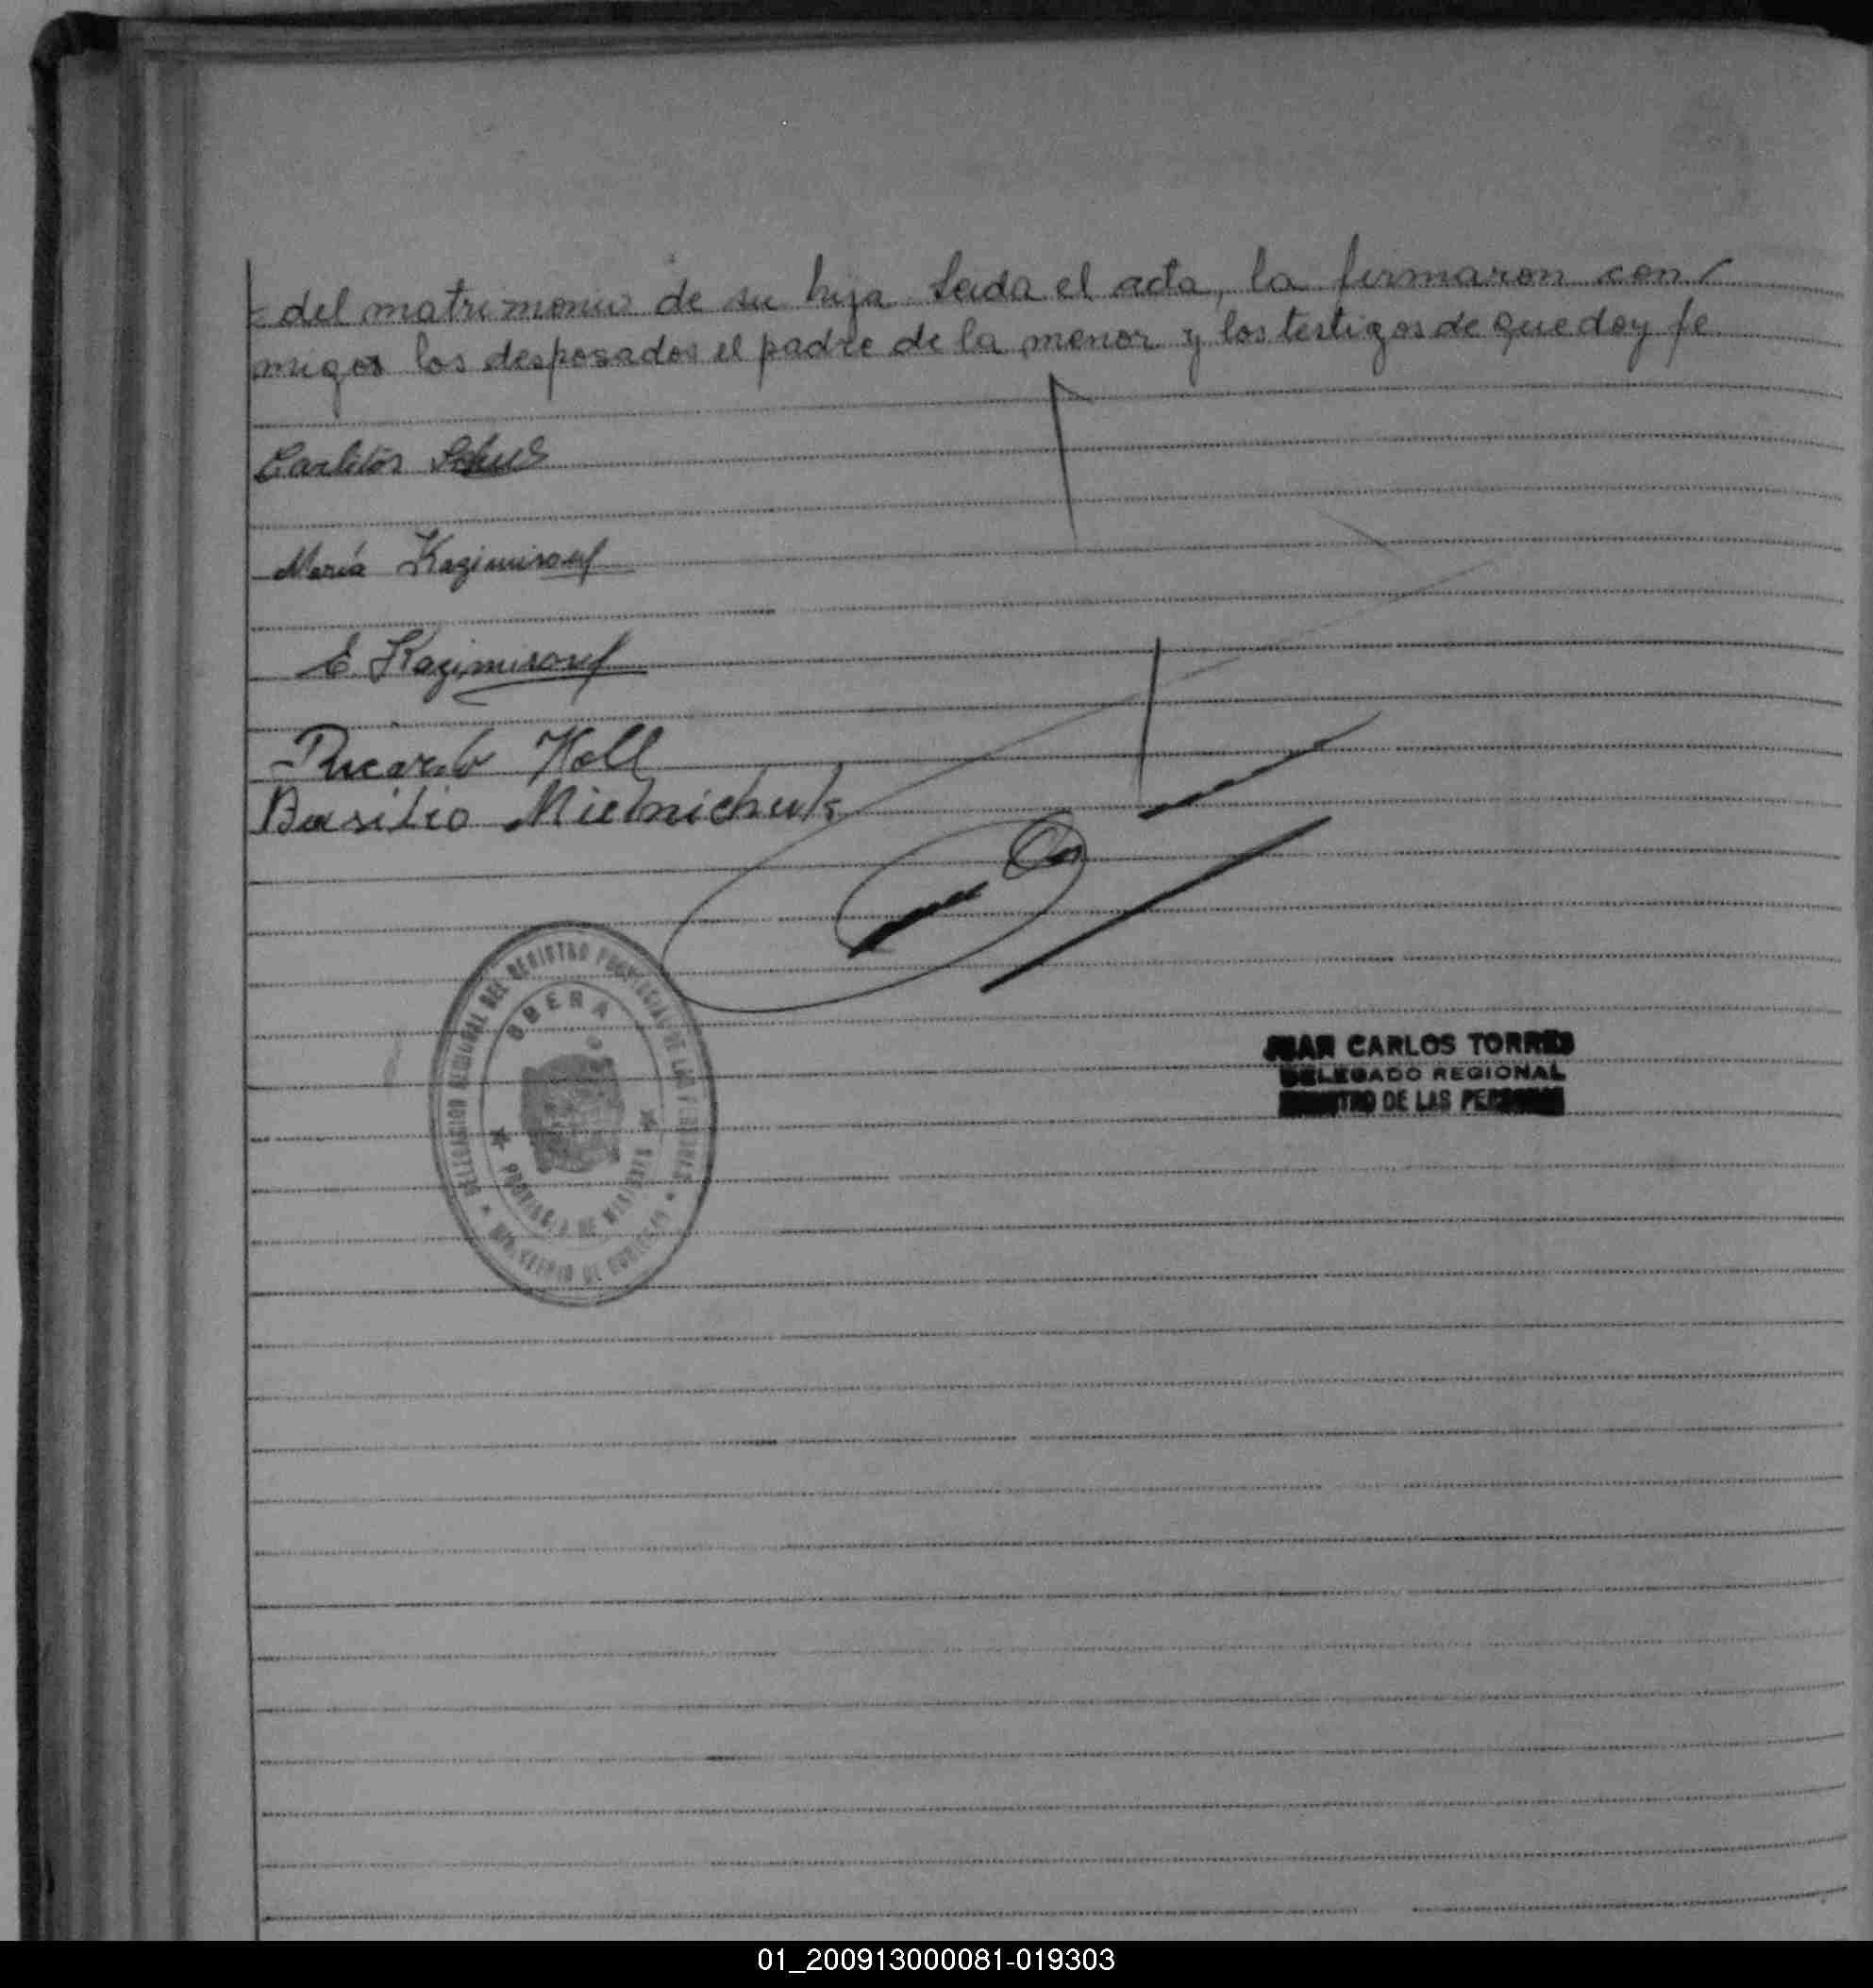 del matrimonio de su hija Leida el acta, la firmaron con
migo los desposados el padre de la menor y los testigos de que doy fe
Carlitos
María Kazimirouf
E. Kazimirouf
Ricardo Holl
Basilio Mielnichuk
DELEGACION REGIONAL DEL REGISTRO PROVINCIAL DE LAS PERSONAS
OBERA
PROVINCIA DE MISIONES
MINISTERIO DE GOBIERNO
JUAN CARLOS TORRES
DELEGADO REGIONAL
REGISTRO DE LAS PERSONAS
01_200913000081-019303